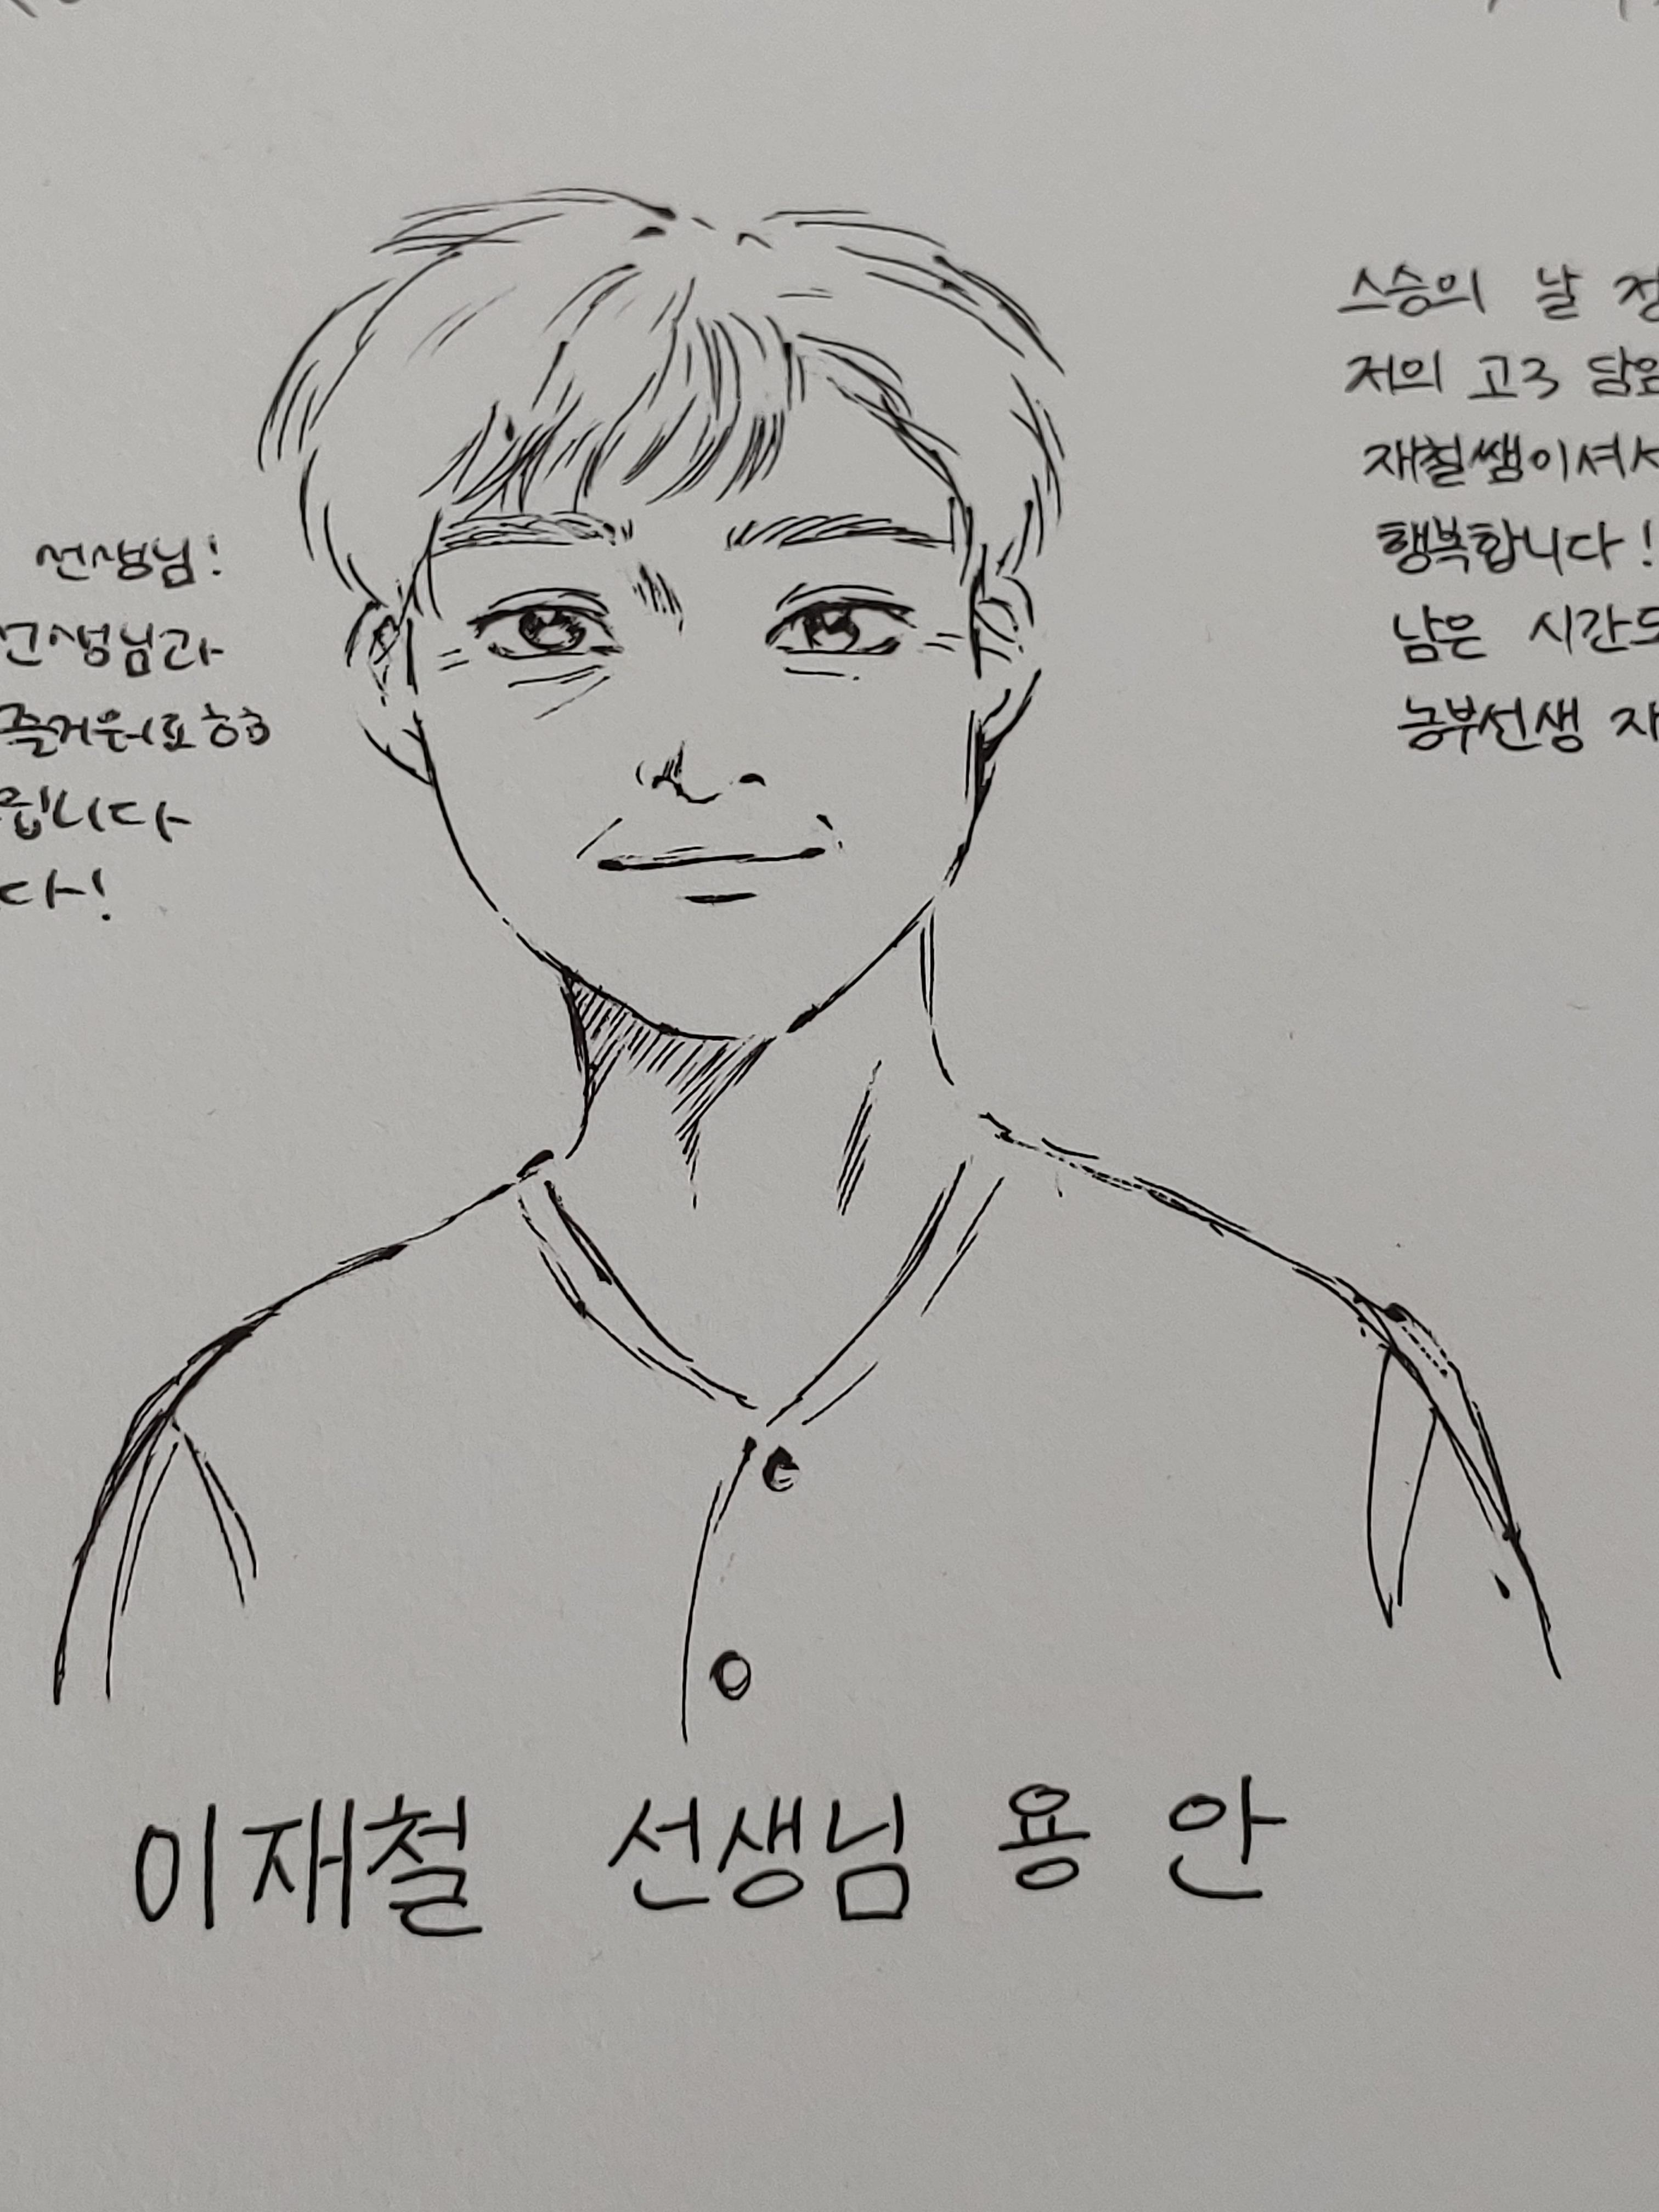 선생님!
선생님과
즐거워요ㅎㅎ
립니다
다!
스승의 날
저의 고3 담임
재철쌤이셔서
행복합니다!
남은 시간도
농부선생
이재철 선생님 용안